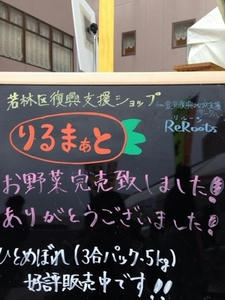 若林区復興支援ショップ
りるまぁと
リルーツ
ReRoots
お野菜完売致しました!!
ありがとうございました!
ひとめぼれ(3合パック・5kg)
好評販売中です!!